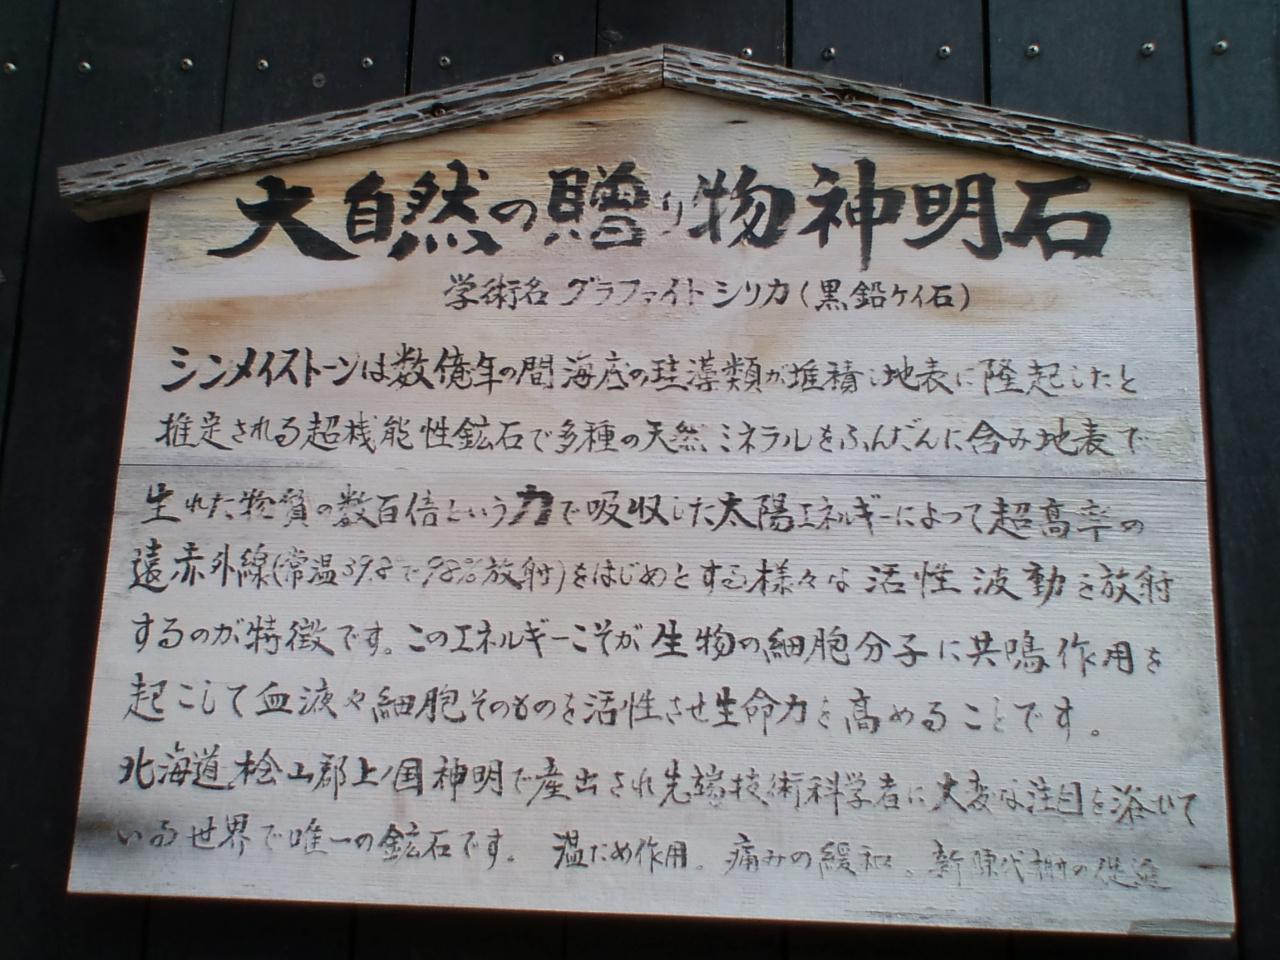 大自然の贈り物神明石
学術名 グラファイトシリカ(黒鉛ケイ石)
シンメイストーンは数億年の間海底の珪藻類が堆積し地表に隆起したと
推定される超機能性鉱石で多種の天然ミネラルをふんだんに含み地表で
生れた物質の数百倍という力で吸収した太陽エネルギーによって超高率の
遠赤外線(常温37.2で92%放射)をはじめとする様々な活性波動を放射
するのが特徴です。このエネルギーこそが生物の細胞分子に共鳴作用を
起こして血液や細胞そのものを活性させ生命力を高めることです。
北海道桧山郡上ノ国神明で産出され先端技術科学者に大変な注目を浴びて
いる世界で唯一の鉱石です。 温ため作用。痛みの緩和。新陳代謝の促進